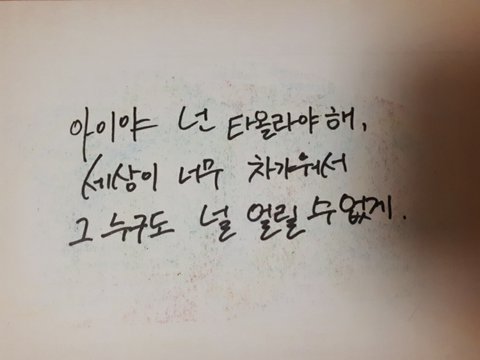 아이야 넌 타올라야 해,
세상이 너무 차가워서
그 누구도 널 얼릴 수 없게.